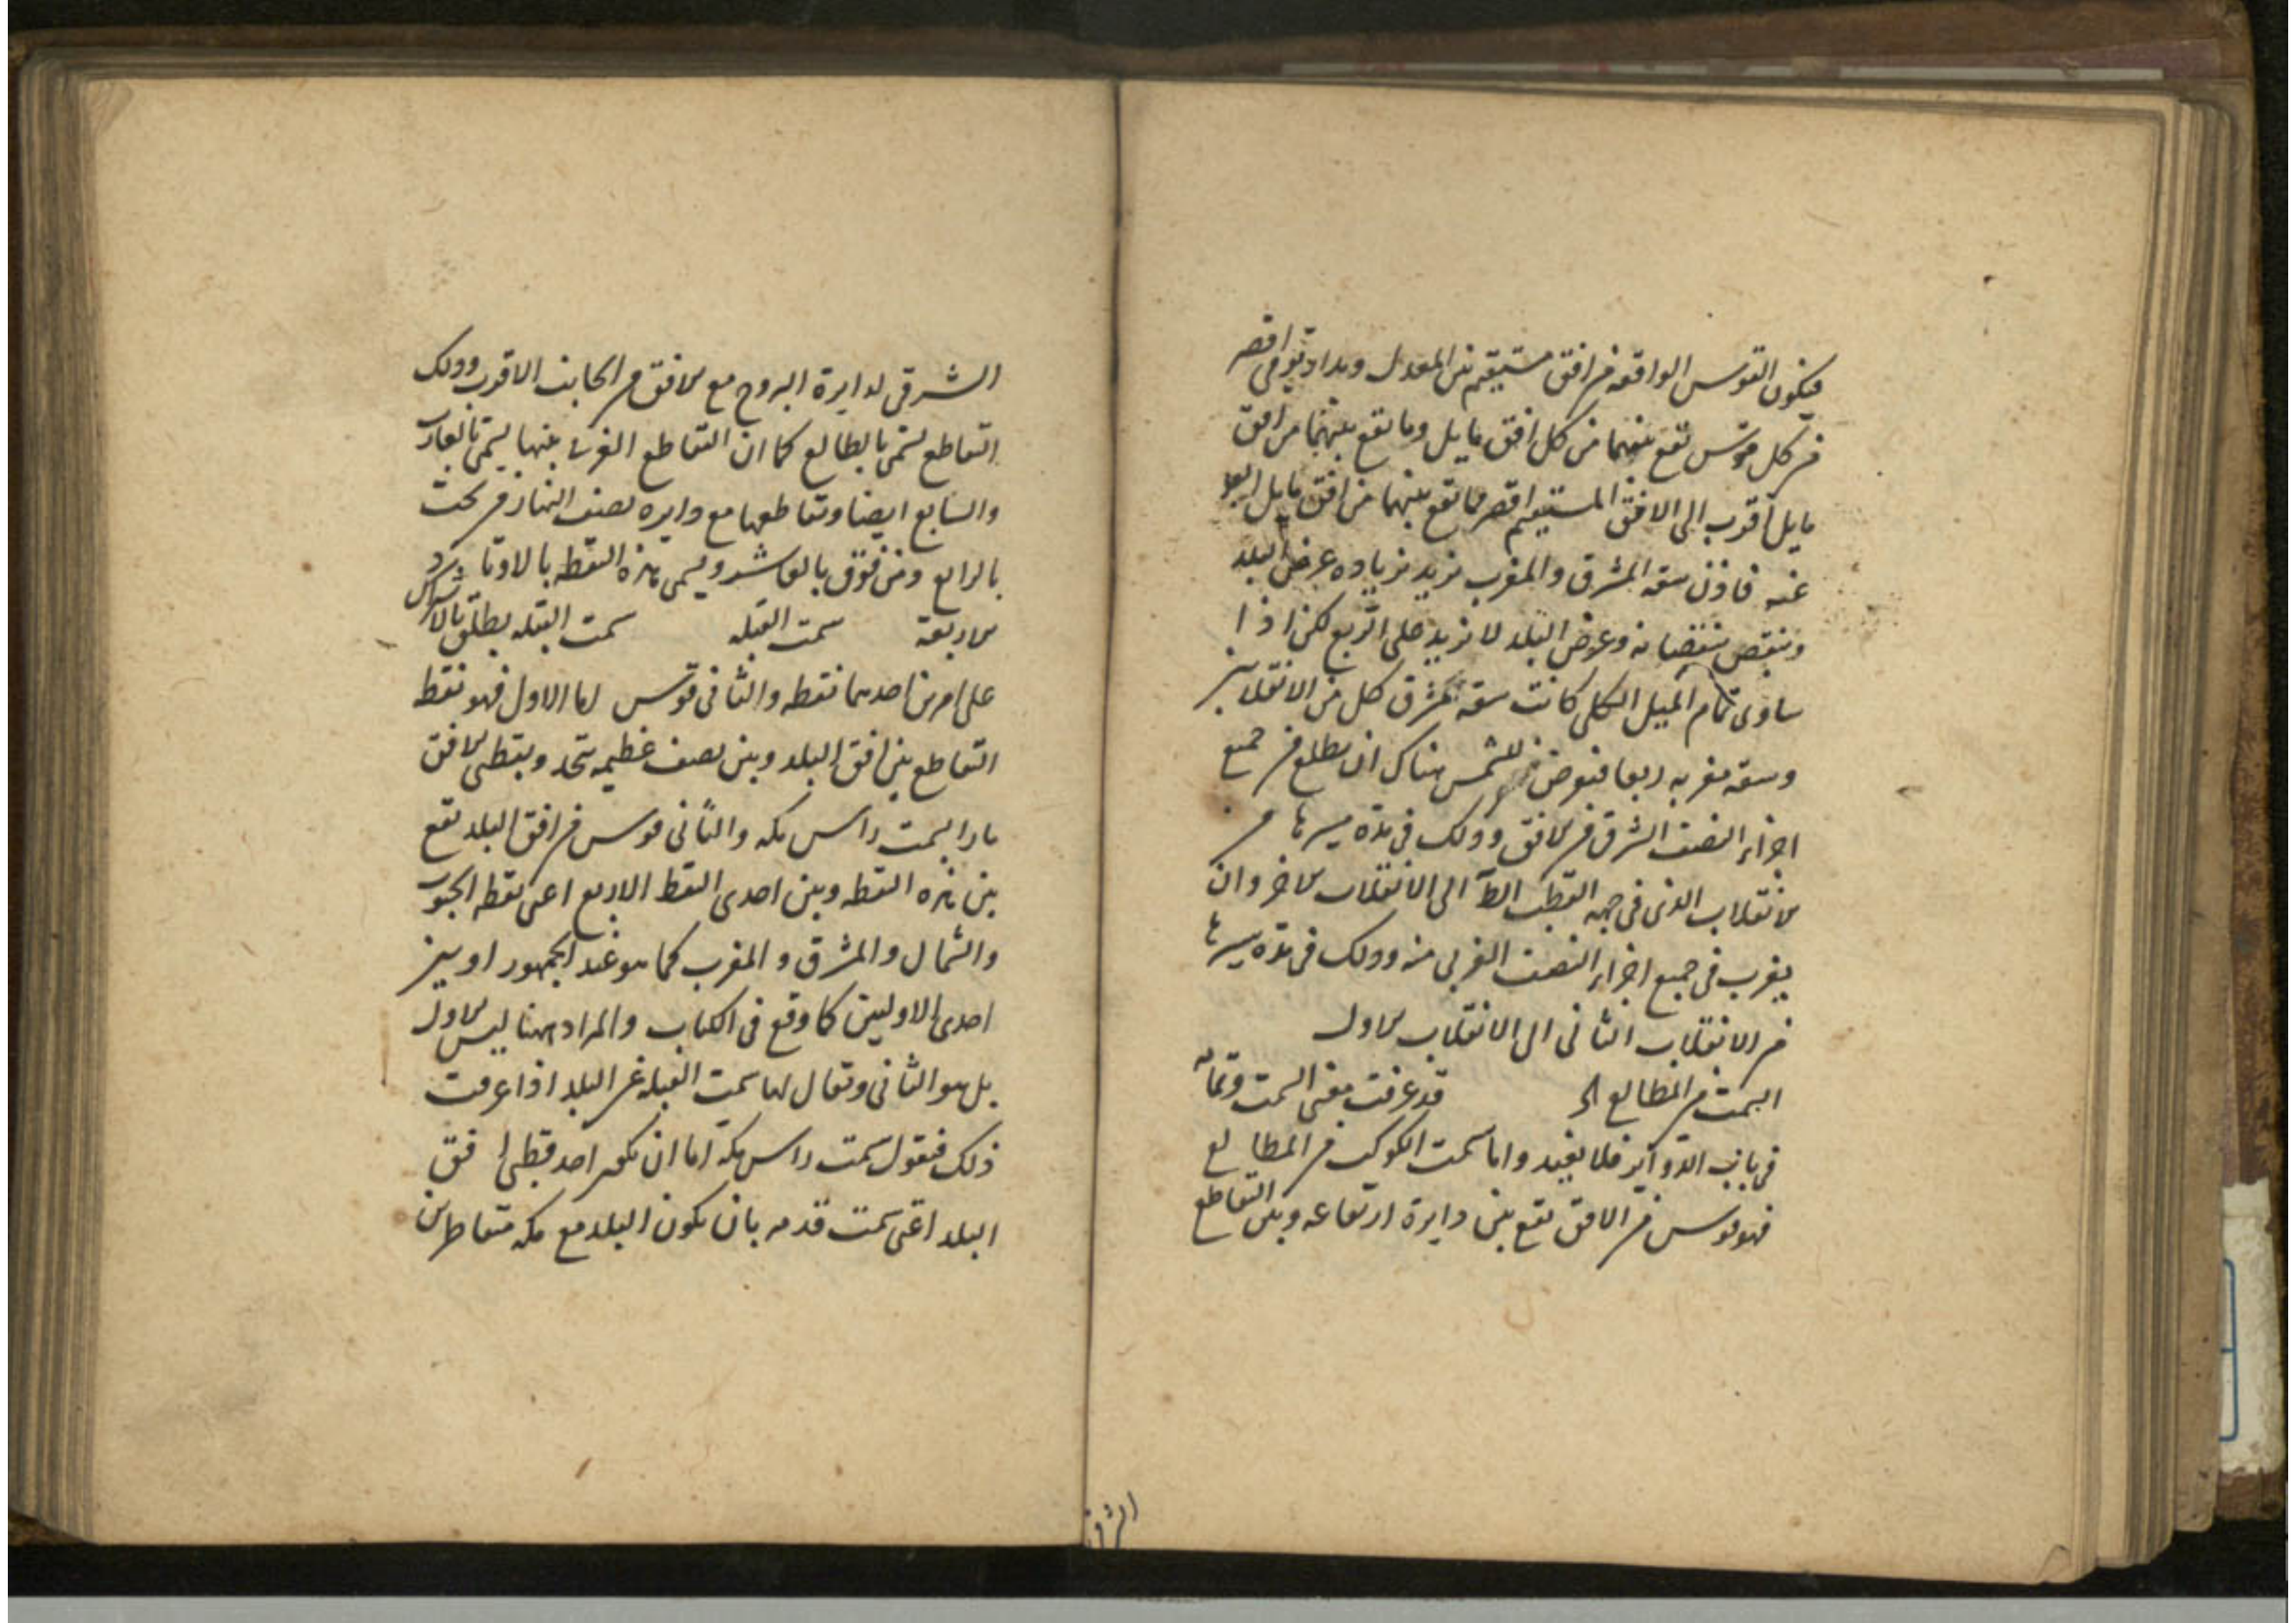 فيكون القوس الواقعه من افق مستقيم بين المعدل ومدار يومى اقصر
من كل قوس تقع بينهما من كل افق مايل وما تقع بينهما من افق
مايل اقرب الى الافق المستقيم اقصر مما تقع بينهما من افق مايل ابعد
عنه فاذن سعة المشرق والمغرب تزيد بزياده عرض البلد
وتنقص بنقصانه وعرض البلد لا تزيد على الربع لكن اذا
ساوى تمام الميل الكلى كانت سعة مشرق كل من الانقلابين
وسعة مغربه ربعا فيعرض للشمس هناك ان يطلع من جميع
اجزاء النصف الشرقى من الافق وذلك فى مدة مسيرها من
الانقلاب الذى فى جهه القطب الظ الى الانقلاب الاخر وان
يغرب فى جميع اجزاء النصف الغربى منه وذلك فى مدة مسيرها
من الانقلاب الثانى الى الانقلاب الاول
السمت من المطالع الخ قد عرفت معنى السمت وتمامه
فى باب الدواير فلا نعيد واما سمت الكوكب من المطالع
فهو قوس من الافق تقع بين دايرة ارتفاعه وبين التقاطع
الشرقى
الشرقى لدايرة البروج مع الافق من الجانب الاقرب وذلك
التقاطع يسمى بالطالع كما ان التقاطع الغربى بينهما يسمى بالغارب
والسابع ايضا وتقاطعها مع دايره نصف النهار من تحت
بالرابع ومن فوق بالعاشر ويسمى هذه النقط بالاوتاد
الاربعة سمت القبله سمت القبله يطلق بالاشتراك
على امرين احدهما نقطه والثانى قوس اما الاول فهو نقطه
التقاطع بين افق البلد وبين نصف عظيمه تحد وبقطبى الافق
مارا بسمت راس مكه والثانى قوس من افق البلد تقع
بين هذه النقطه وبين احدى النقط الاربع اعنى نقطه الجنوب
والشمال والمشرق والمغرب كما هو عند الجمهور او بين
احدى الاوليين كما وقع فى الكتاب والمراد ههنا ليس الاول
بل هو الثانى وتقال لها سمت القبله عن البلد اذا عرفت
ذلك فنقول سمت راس مكه اما ان يكون احد قطبى افق
البلد اعنى سمت قدمه بان يكون البلد مع مكه متقاطرين